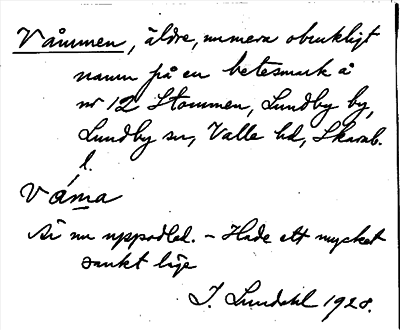 Våmmen, äldre, numera obrukligt
namn på en betesmark å
nr 12 Stommen, Lundby by,
Lundby sn, Valle hd, Skarab.
l.
Váma
Är nu uppodled. – Hade ett mycket
sankt läge
J. Lundahl 1928.